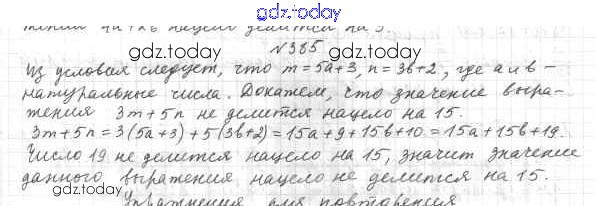 gdz.today
делится на 3
№385
gdz.today gdz.today
Из условия следует, что m=5a+3, n=3b+2, где a и b-
натуральные числа. Докажем, что значение выра-
жения 3m+5n не делится нацело на 15.
3m+5n=3(5a+3)+5(3b+2)=15a+9+15b+10=15a+15b+19.
Число 19 не делится нацело на 15, значит значение
данного выражения нацело не делится на 15.
gdz.today gdz.today
Упражнения для повторения
gdz.today